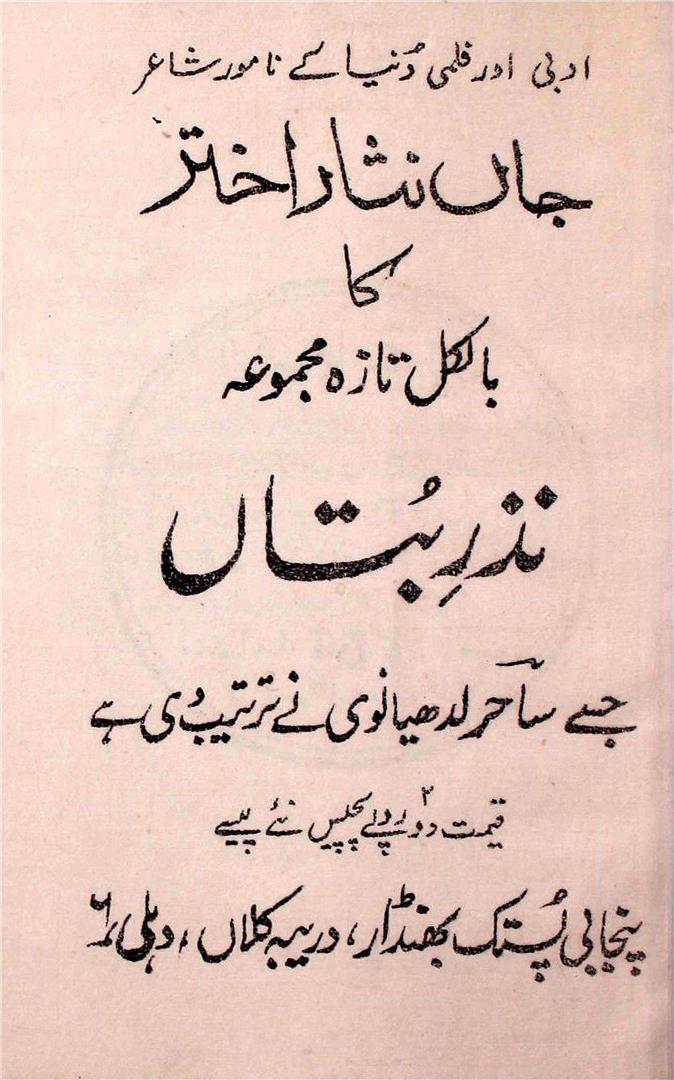 ادبی اور فلمی دُنیا کے نامور شاعر
جاں نثار اختر
کا
بالکل تازہ مجموعہ
نذرِ بُتاں
جسے ساحر لدھیانوی نے ترتیب دی ہے
قیمت دو روپے پچیس نئے پیسے
پنجابی پُستک بھنڈار، دریبہ کلاں، دہلی ۶